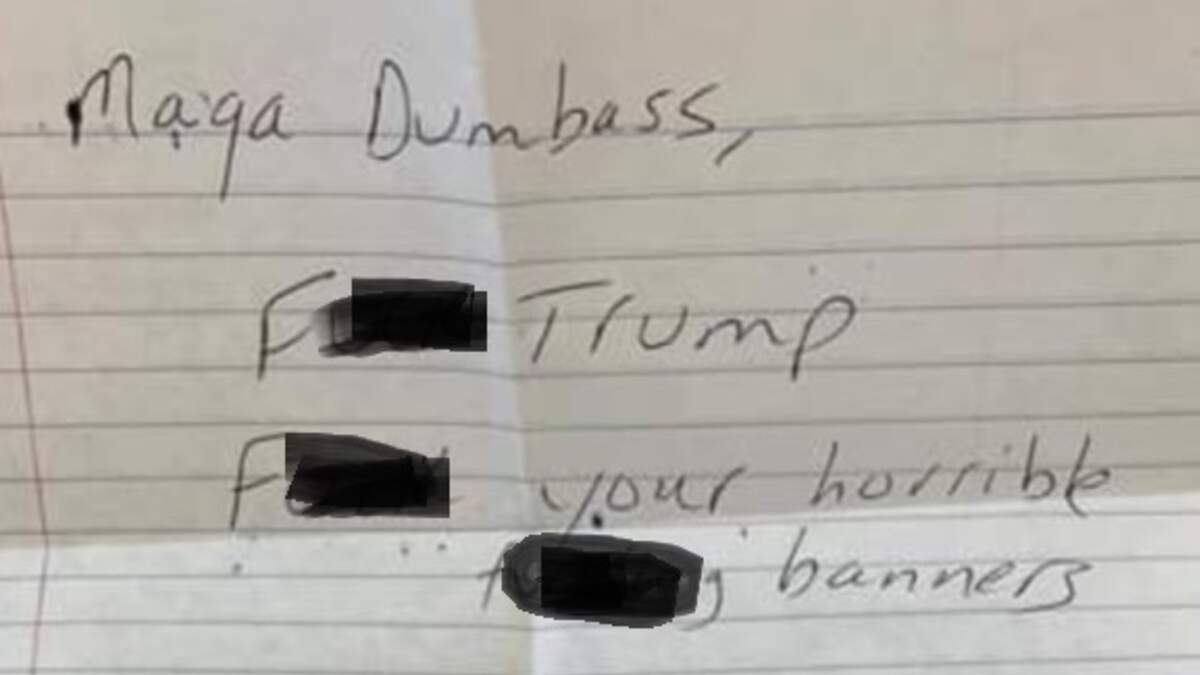 Maga Dumbass,
F Trump
F your horrible
f g banners